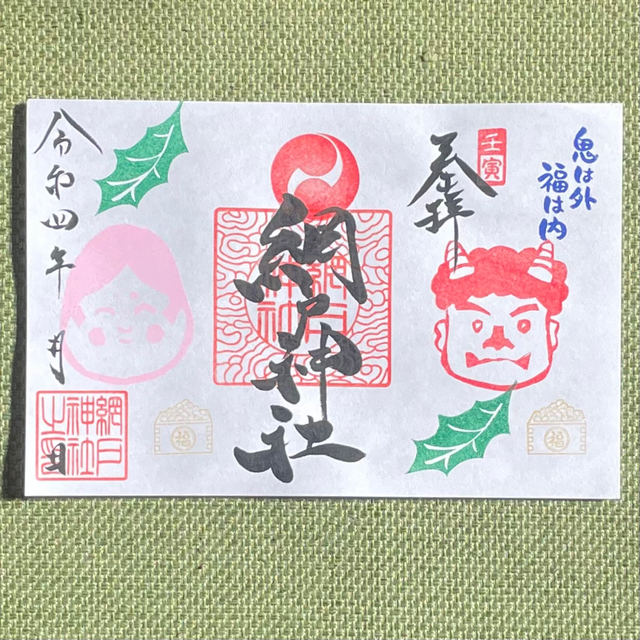 鬼は外
福は内
壬寅
奉拝
網戸神社
網戸
神社
令和四年 月 日
網戸
神社
之印
福
福